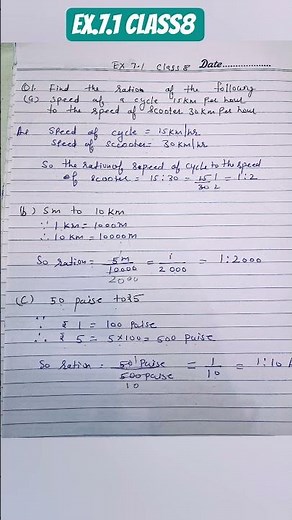 EX.7.1 CLASS8
EX 7.1 Class 8 Date....................
Q1. Find the ration of the following
(a) Speed of a cycle 15 km per hour
to the speed of scooter 30 km per hour
Ans Speed of cycle = 15 km/hr
Speed of scooter = 30 km/hr
So the ration of speed of cycle to the speed
of scooter = 15 : 30 = 15/30 1/2 = 1:2
(b) 5m to 10 km
∵ 1 km = 1000m
∴ 10 km = 10000m
So ration = 5m/10000 2000 = 1/2000 = 1:2000
(C) 50 paise to ₹5
∵ ₹ 1 = 100 paise
∴ ₹ 5 = 5×100 = 500 paise
So ration = 50 1 paise/500 paise 10 = 1/10 = 1:10